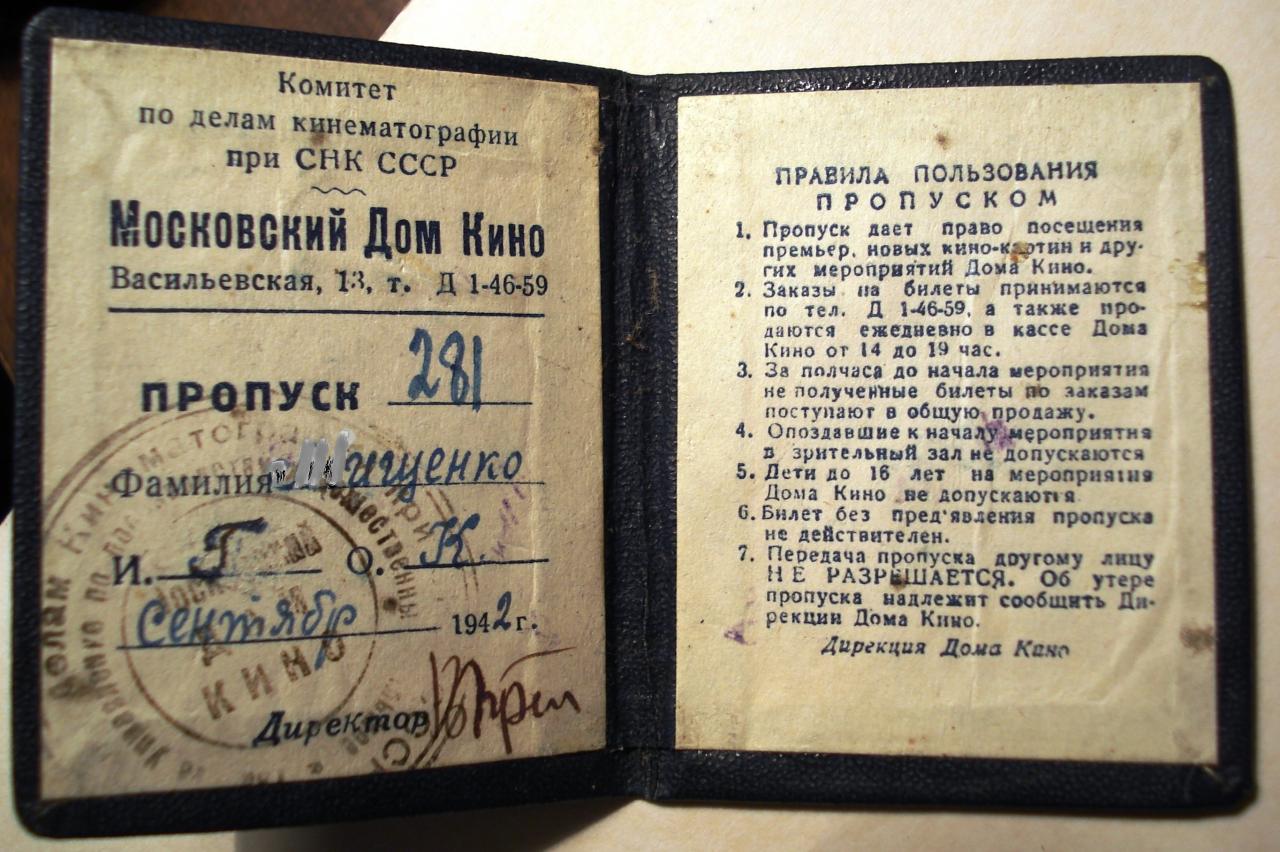 Комитет
по делам кинематографии
при СНК СССР
Московский Дом Кино
Васильевская, 13, т. Д 1-46-59
ПРОПУСК 281
Фамилия Мищенко
И. Г О. К.
Сентябр 1942 г.
Директор
Московский
ДОМ
КИНО
ПРАВИЛА ПОЛЬЗОВАНИЯ
ПРОПУСКОМ
1. Пропуск дает право посещения
премьер, новых кино-картин и дру-
гих мероприятий Дома Кино.
2. Заказы на билеты принимаются
по тел. Д 1-46-59, а также про-
даются ежедневно в кассе Дома
Кино от 14 до 19 час.
3. За полчаса до начала мероприятия
не полученные билеты по заказам
поступают в общую продажу.
4. Опоздавшие к началу мероприятия
в зрительный зал не допускаются
5. Дети до 16 лет на мероприятия
Дома Кино не допускаются
6. Билет без пред'явления пропуска
не действителен.
7. Передача пропуска другому лицу
НЕ РАЗРЕШАЕТСЯ. Об утере
пропуска надлежит сообщить Ди-
рекции Дома Кино.
Дирекция Дома Кино